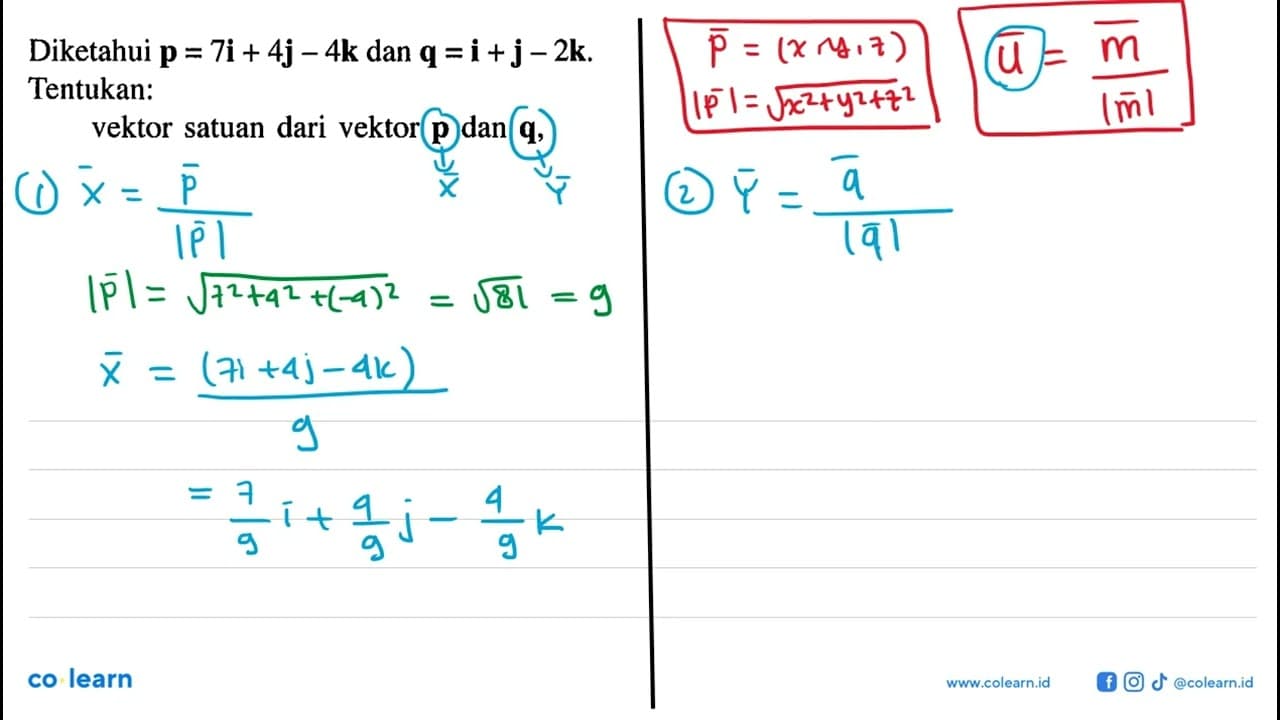 Diketahui p = 7i + 4j – 4k dan q = i + j – 2k.
Tentukan:
vektor satuan dari vektor p dan q,
x̄ Ȳ
① x̄ = p̄ / |p̄|
|p̄| = √7²+4²+(-4)² = √81 = 9
x̄ = (7i +4j – 4k) / 9
= 7/9 i + 4/9 j – 4/9 k
p̄ = (x, y, z)
|p̄| = √x²+y²+z²
ū = m̄ / |m̄|
② Ȳ = q̄ / |q̄|
co learn
www.colearn.id
@colearn.id